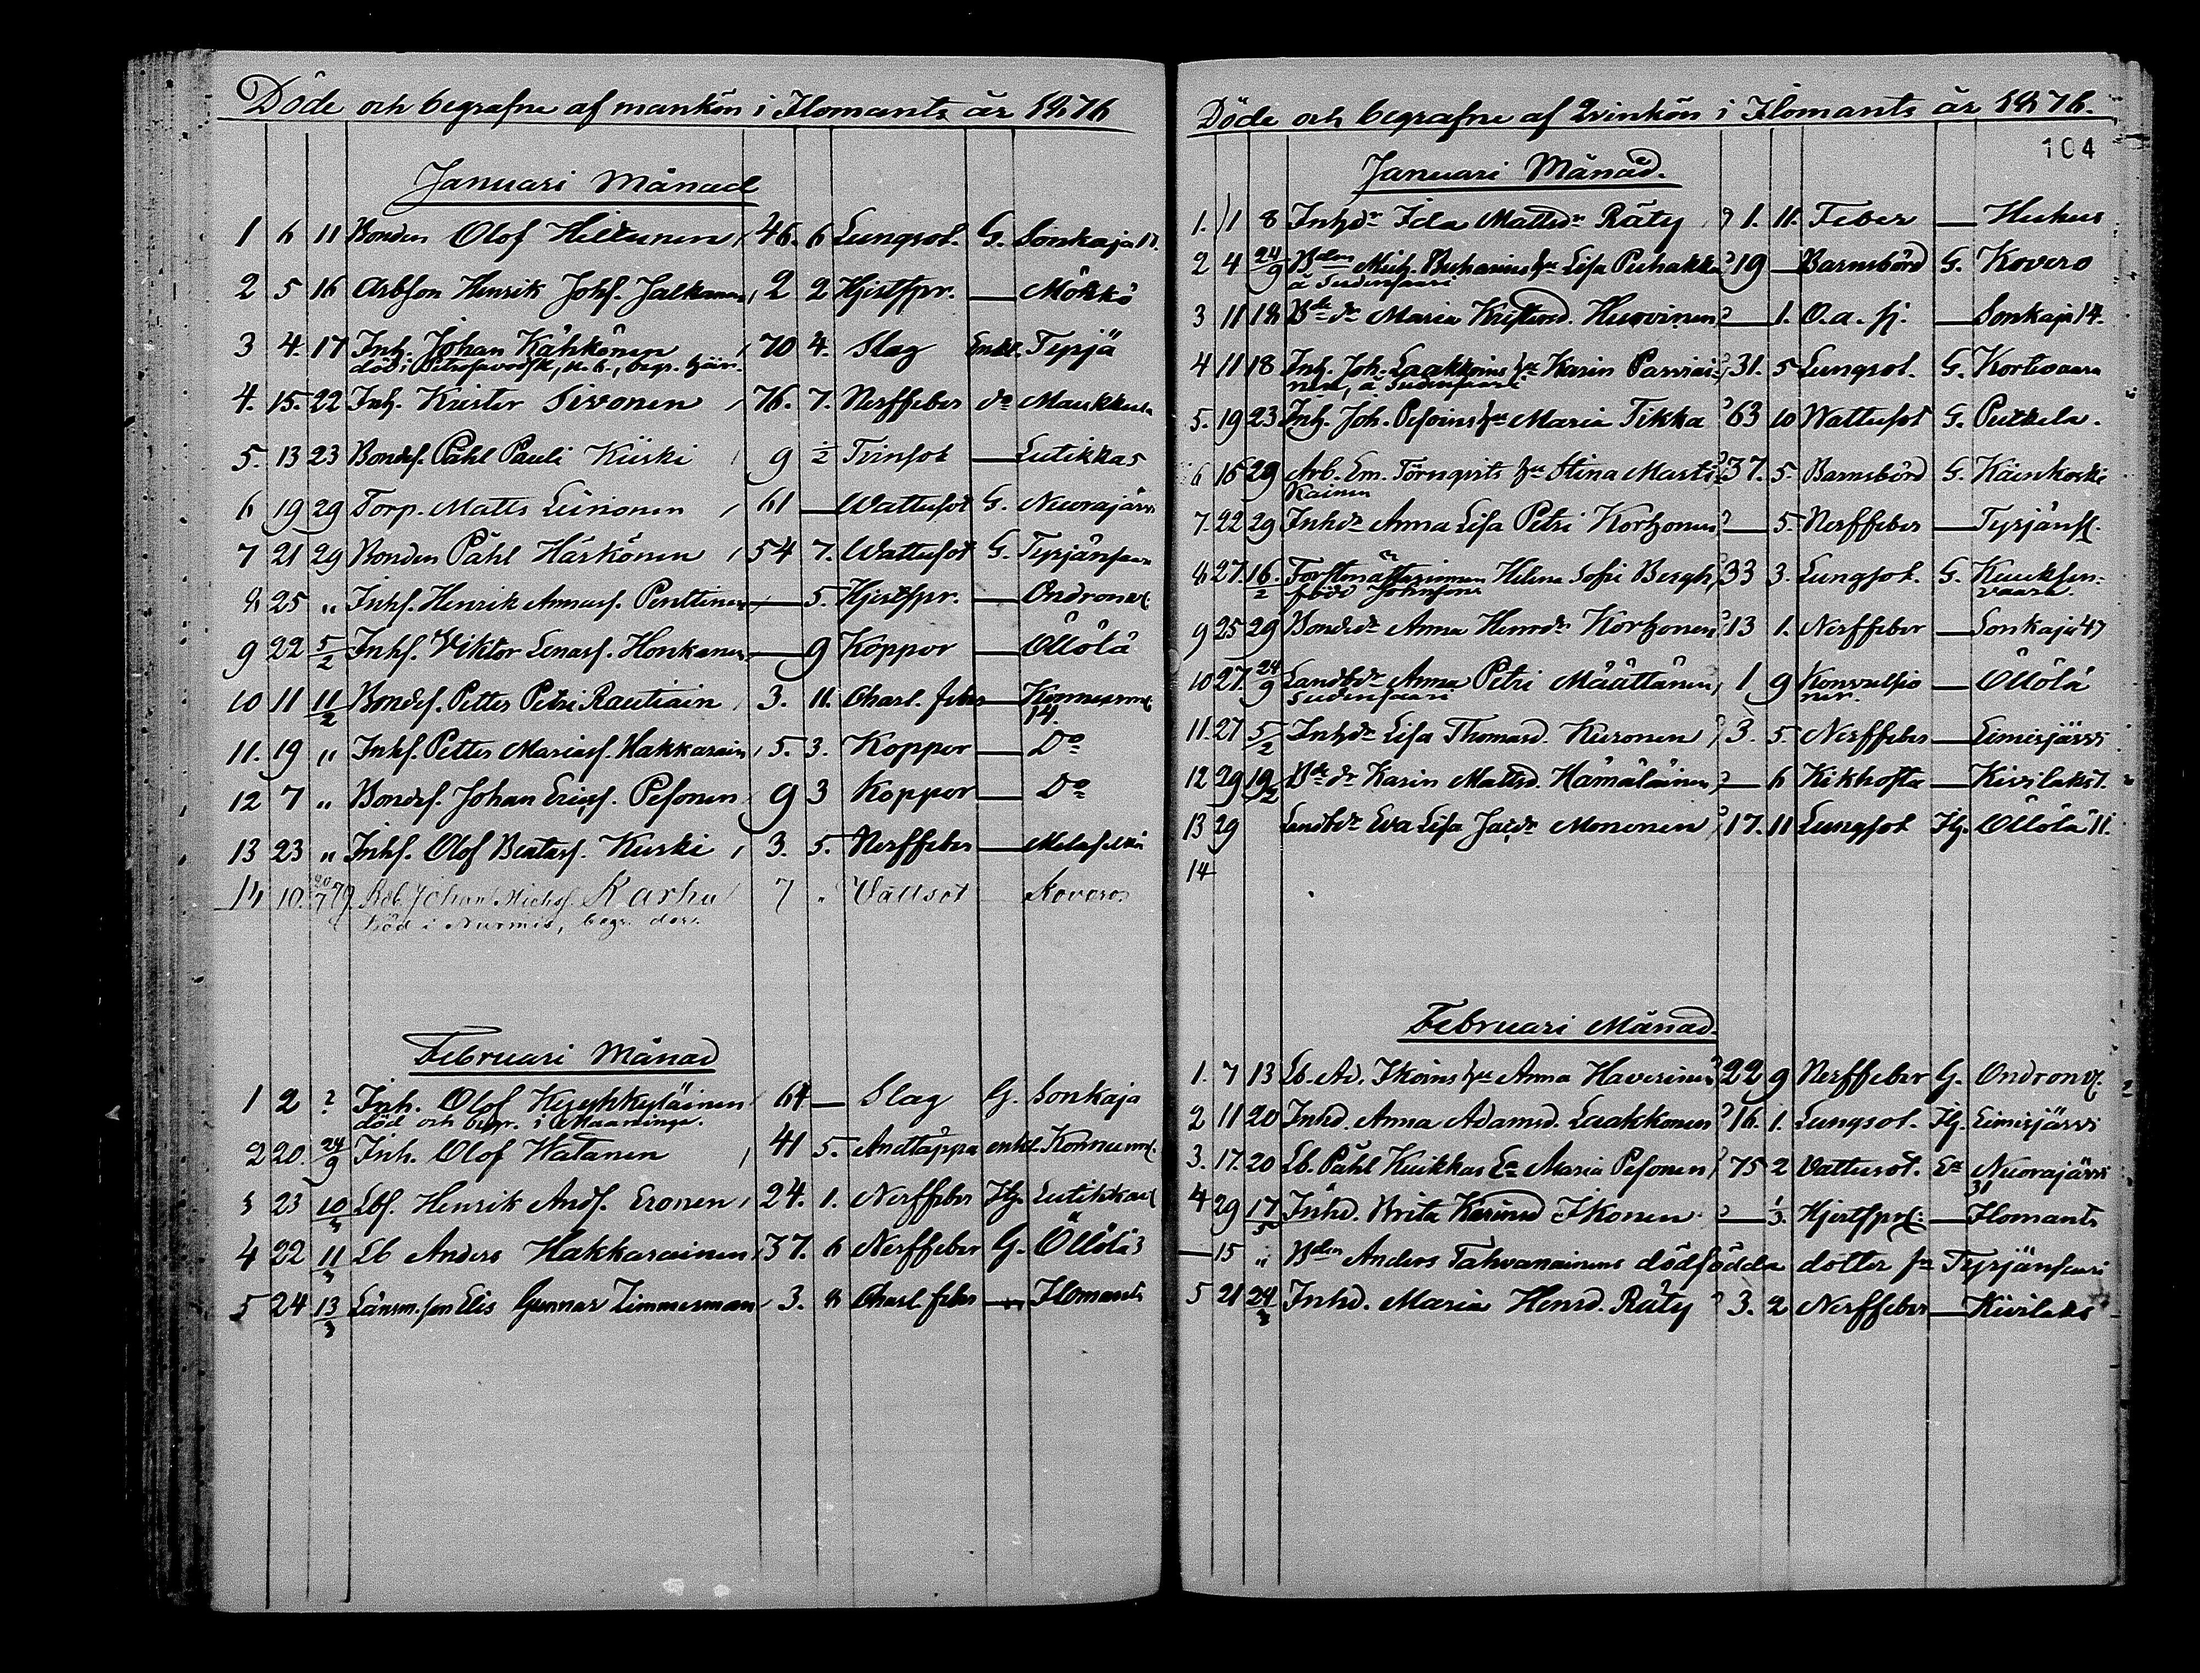 Döde och begrafne af mankön i Ilomants år 1876
Januari Månad
1 6 11 Bonden Olof Hiltunen 46. 6 Lungsot. G. Sonkaja 17.
2 5 16 Arbson Henrik Johs. Jalkanen 2 2 Hjertspr. — Mökkö
3 4. 17 Inh. Johan Kähkönen 70 4. Slag Enkl. Tyrjä
död i Petrosavodsk, begr. här.
4. 15. 22 Inh. Krister Sivonen 76. 7. Nerffeber do Maukkula
5. 13 23 Bonds. Påhl Pauli Kuiski 9 ½ Tvinsot — Lutikka 5
6 19 29 Torp. Matts Leinonen 61 — Wattusot G. Nuorajärvi
7 21 29 Bonden Påhl Härkönen 54 7. Wattusot G. Tyrjänsaari
8 25 " Inhs. Henrik Annas. Penttinen — 5. Hjertspr. — Ondronv.
9 22 5/2 Inhs. Viktor Lenas. Honkanen — 9 Koppor — Öllölä
10 11 11/2 Bonds. Petter Petri Rautiain 3. 11. Charl. feber — Konnunn.
14.
11. 19 " Inhs. Petter Marias. Hakkarain 5. 3. Koppor — Do
12 7 " Bonds. Johan Erics. Pesonen 9 3 Koppor — Do
13 23 " Inhs. Olof Beatas. Kuiski 3. 5. Nerffeber — Melaselkä
14 10. 20/7 79 Johan Michs. Karhu 7 " Vattsot Kovero
Död i Nurmis, begr. der.
Februari Månad
1 2 ? Inh. Olof Kuyhkyläinen 64 — Slag G. Sonkaja
död och begr. i Maaninga.
2 20. 24/9 Inh. Olof Hatanen 41 5. Andtäppa enkl. Konnunn.
3 23 10/3 Lbs. Henrik Ands. Eronen 24. 1. Nerffeber Og. Lutikkav.
4 22 11/3 Lb Anders Hakkarainen 37. 6 Nerffeber G. Öllölä 3
5 24 13/3 Länsm. son Elis Gunnar Zimmerman 3. 8 Charl. feber — Ilomants
Döde och begrafne af Qvinkön i Ilomants år 1876.
104
Januari Månad.
1. 1 8 Inhdr Ida Mattsdr Räty 1. 11. Feber — Huhus
2 4 24/9 Bden Mich. Buhanins hu Lisa Puhakka 19 — Barnsbörd G. Kovero
å Sudensaari
3 11 18 Bde dr Maria Kristersd. Hurvinen — 1. O.a.sj. — Sonkaja 14.
4 11 18 Inh. Joh. Laakkoins hu Karin Parviai- 31. 5 Lungsot. G. Kortevaara
nen, å Sudensaari
5. 19 23 Inh. Joh. Pesoins hu Maria Tikka 63 10 Wattusot G. Putkela.
6 15 29 Arb. Em. Törnqvists hu Stina Marti- 37. 5. Barnsbörd G. Käenkoski
kainen
7. 22 29 Inhdr Anna Lisa Petri Korhonen — 5. Nerffeber — Tyrjäns.
8 27. 16/2 Forstmästarinnan Helena Sofie Bergh, 33 3. Lungsot. G. Kuuksen-
född Johnsson vaara.
9 25 29 Bondedr Anna Henrdr Korhonen 13 1. Nerffeber — Sonkaja 47
10 27. 24/9 Landbdr Anna Petri Määttänen 1 9 Konvulsio — Öllölä
Sudensaari ner.
11. 27 5/2 Inhdr Lisa Thomasd. Kuronen 3. 5. Nerffeber — Eimisjärvi
12 29 19/2 Bde dr Karin Mattsd. Hämäläinen — 6 Kikhosta — Kivilakst.
13 29 Landbdr Eva Lisa Jacdr Mononen 17. 11 Lungsot Og. Öllölä 11.
14
Februari Månad.
1. 7 13 Lb. Ad. Ikoins hu Anna Haverinen 22 9 Nerffeber G. Ondronv.
2 11 20 Inhd. Anna Adamsd. Laakkonen 16. 1. Lungsot. Og. Eimisjärvi
3. 17. 20 Lb. Påhl Kuikkas Ea Maria Pesonen 75 2 Vattusot. Ea Nuorajärvi
31
4 29 17/5 Inhd. Brita Karinsd Ikonen — ⅓. Hjertspr. — Ilomants
— 15 " Bden Anders Tahvanainens dödfödda dotter fr. Tyrjänsaari
5 21 24/3 Inhd. Maria Hensd. Räty 3. 2 Nerffeber — Kivilaks